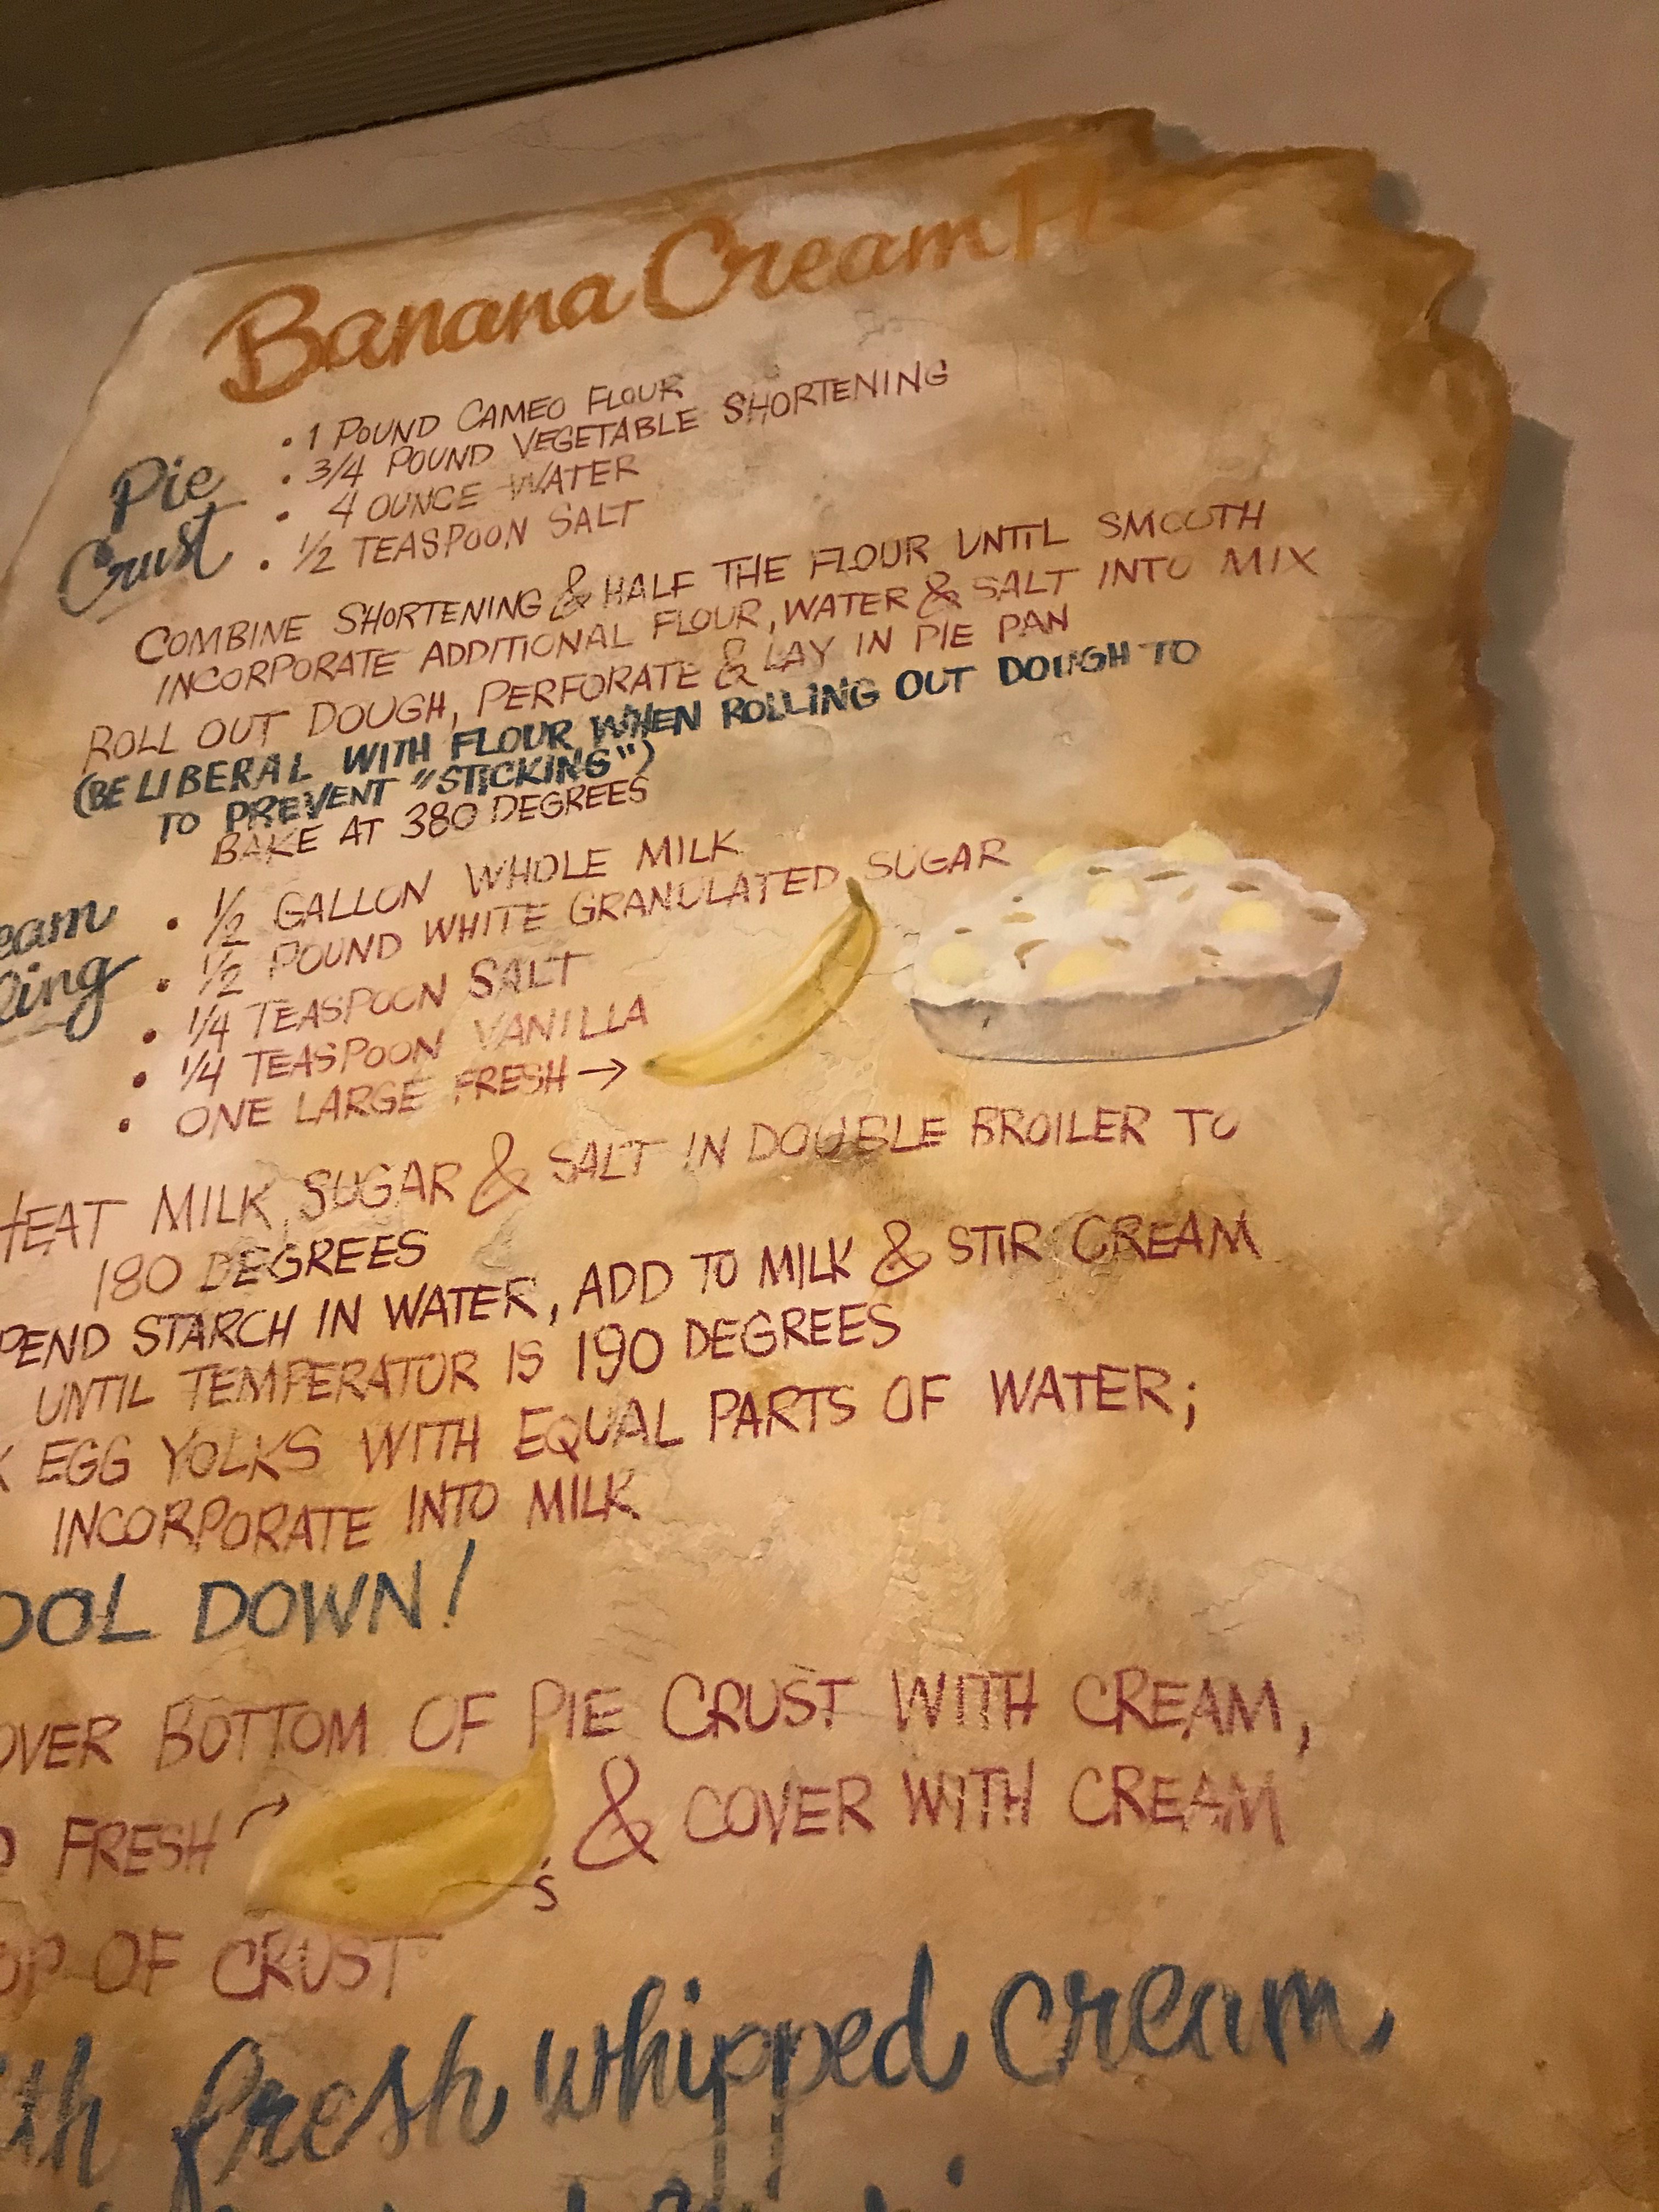 Banana Cream
Pie
Crust
• 1 POUND CAMEO FLOUR
• 3/4 POUND VEGETABLE SHORTENING
• 4 OUNCE WATER
• 1/2 TEASPOON SALT
COMBINE SHORTENING & HALF THE FLOUR UNTIL SMOOTH
INCORPORATE ADDITIONAL FLOUR, WATER & SALT INTO MIX
ROLL OUT DOUGH, PERFORATE & LAY IN PIE PAN
(BE LIBERAL WITH FLOUR WHEN ROLLING OUT DOUGH TO
TO PREVENT "STICKING")
BAKE AT 380 DEGREES
eam
ling
• 1/2 GALLON WHOLE MILK
• 1/2 POUND WHITE GRANULATED SUGAR
• 1/4 TEASPOON SALT
• 1/4 TEASPOON VANILLA
• ONE LARGE FRESH →
HEAT MILK, SUGAR & SALT IN DOUBLE BROILER TO
180 DEGREES
PEND STARCH IN WATER, ADD TO MILK & STIR CREAM
UNTIL TEMPERATUR IS 190 DEGREES
X EGG YOLKS WITH EQUAL PARTS OF WATER;
INCORPORATE INTO MILK
OOL DOWN!
OVER BOTTOM OF PIE CRUST WITH CREAM,
D FRESH → 's & COVER WITH CREAM
OP OF CRUST
ith fresh whipped cream